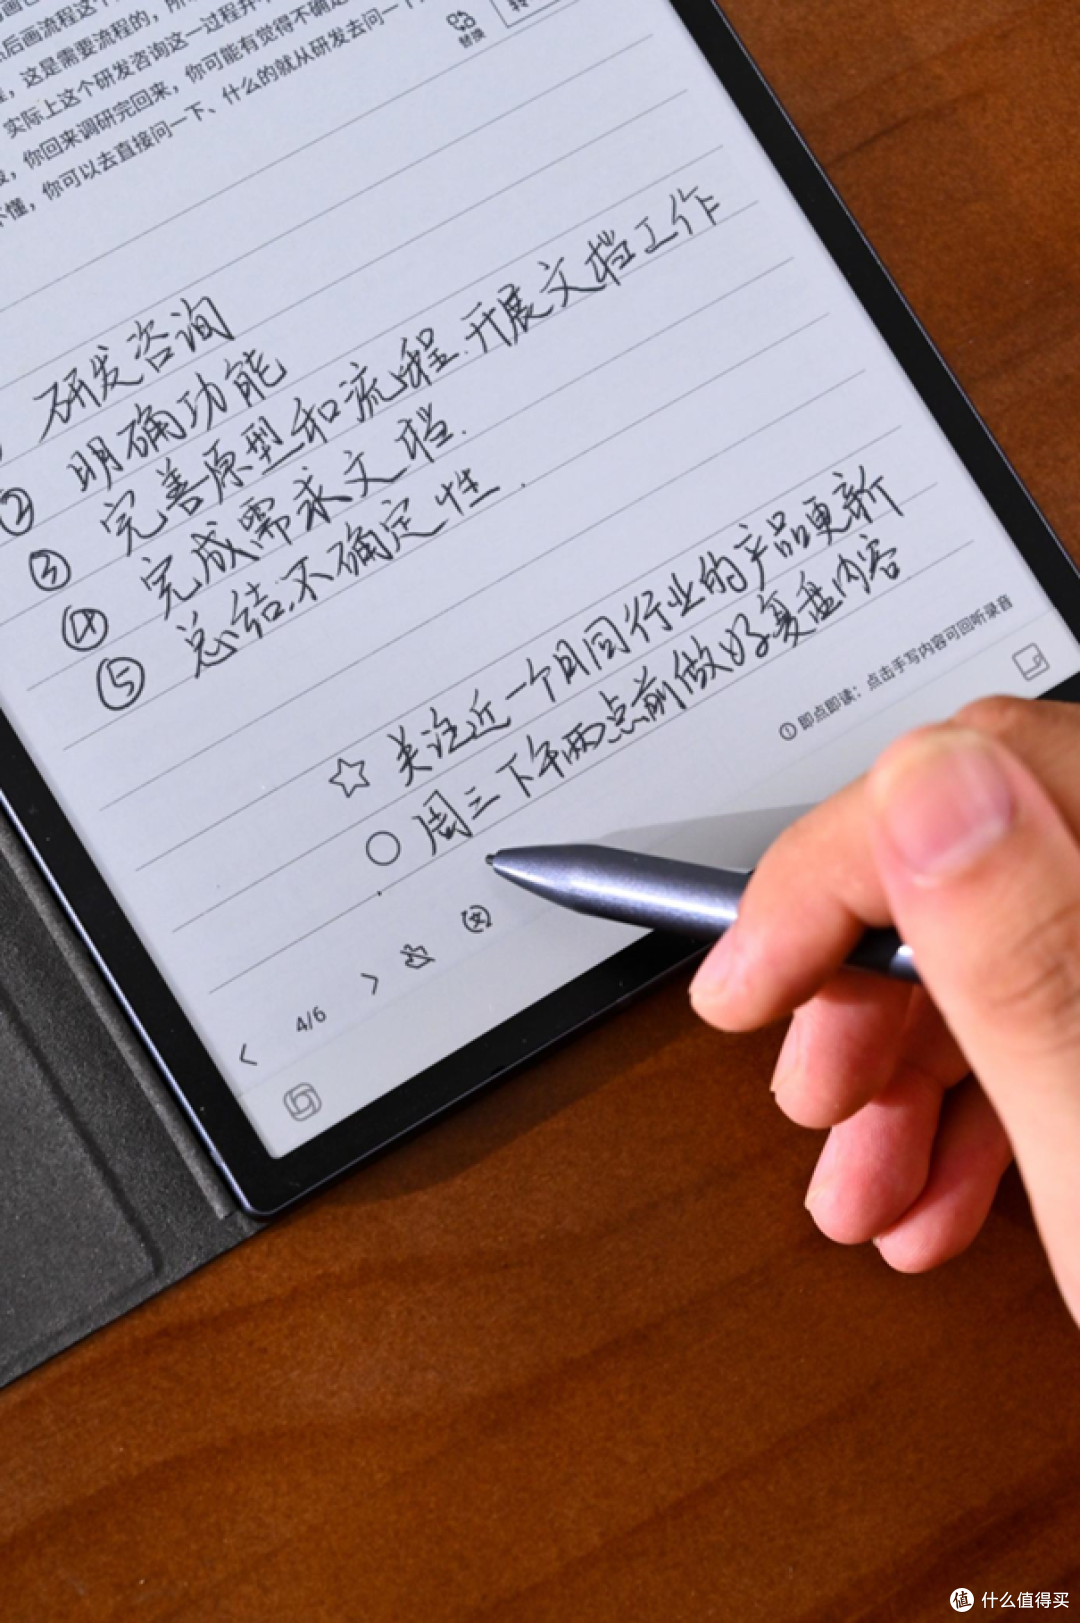 后画流程这个
，这是需要流程的，所
实际上这个研发咨询这一过程并不
，你回来调研完回来，你可能有觉得不确定
懂，你可以去直接问一下、什么的就从研发去问一个
替换
研发咨询
② 明确功能
③ 完善原型和流程.开展文档工作
④ 完成需求文档.
⑤ 总结不确定性.
☆ 关注近一个月同行业的产品更新
○ 周三下午两点前做好复盘内容
① 即点即读：点击手写内容可回听录音
< 4/6 >
值 什么值得买